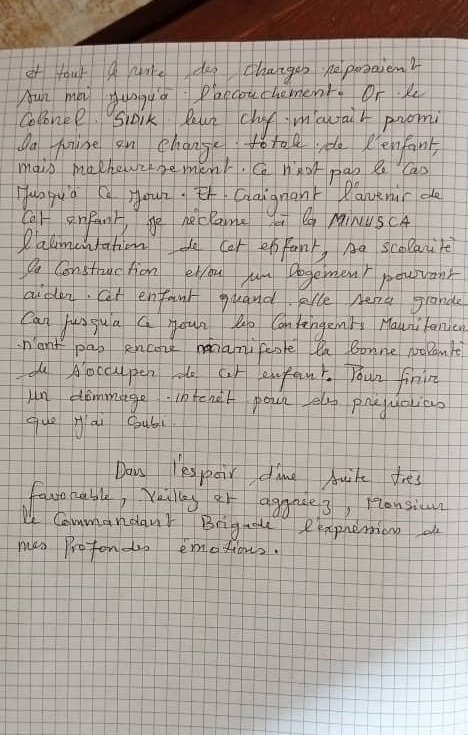 et tout le reste des charges reposaient
sur moi jusqu'à l'accouchement. Or le
Colonel SIDIK leur chef m'avait promi
la prise en charge totale de l'enfant,
mais malheureusement. Ce n'est pas le cas
jusqu'à ce jour. Et Craignant l'avenir de
Cet enfant, je réclame à la MINUSCA
l'alimentation de Cet enfant, sa scolarité
la Construction et/ou un logement pouvant
aider Cet enfant quand elle sera grande
Car jusqu'a Ce jour les Contingents Mauritanien
n'ont pas encore manifesté la bonne volonté
de s'occuper de cet enfant. Pour finir
un dommage interêt pour les prejudices
que j'ai subi.
Dans l'espoir d'une suite très
favorable, Veillez et aggréez, Monsieur
le Commandant Brigade l'expression de
mes Profondes émotions.